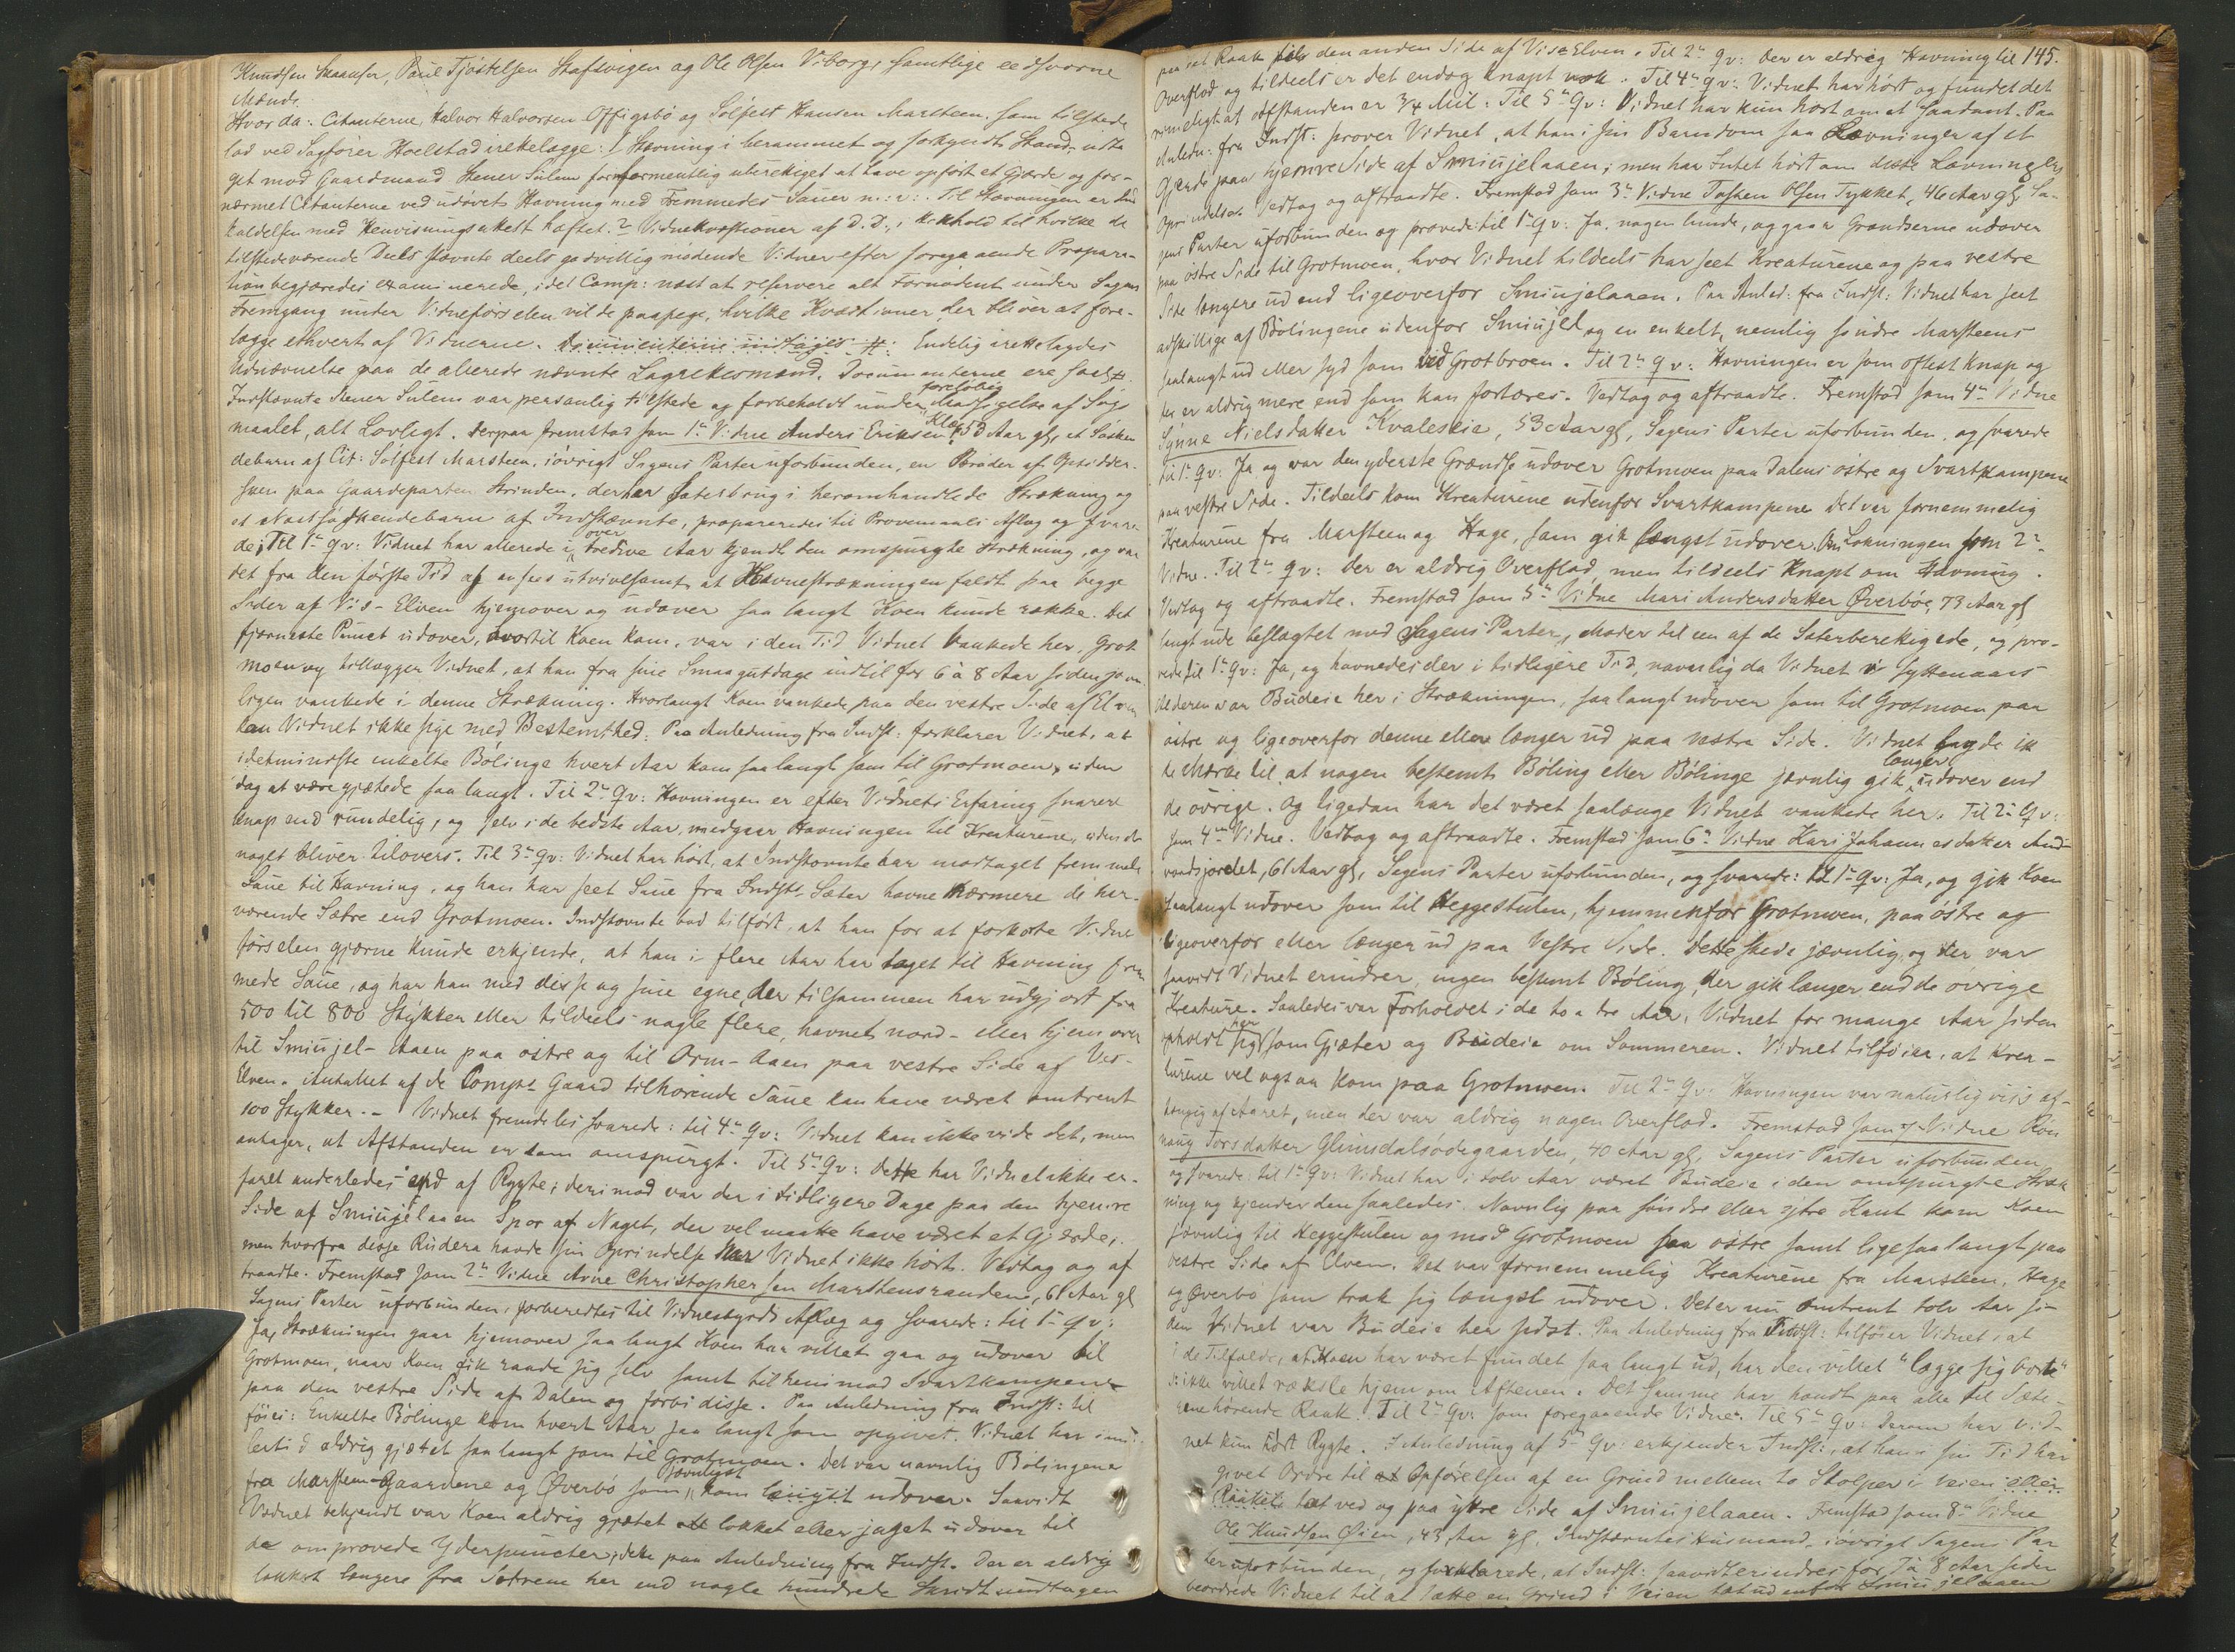 Knudsen Skaanser, Paul Tjöstelsen Stafsvigen og Ole Olsen Viborg, samtlige eedsvorne
Mænd.
Hvorda: Citanterne, Halvor Halvorsen Offigsbö og Sölfest Hansen Marsteen som tilstede
lod ved Sagförer Hoelstad irettelægge: 1 Stævning i berammet og forkyndt Stand, udta
get mod Gaardmand Stener Sülem formentlig uberettiget at have opfört et Gjærde og for-
nærmet Citanterne ved udövet Havning med Fremmedes Sauer m: v: . Til Stævningen er Ind
kaldelsen med Henvisningsattest hæftet. 2 Vidnekvæstioner af D. D., i Henhold til hvilke de
tilstedeværende Deels stævnte deels godvillig mödende Vidner efter foregaaende Præpara-
tion begjæredes examinerede, idet Comp: næst at reservere alt Fornödent under Sagens
Fremgang under Vidneförselen vil de paapege, hvilke Kvæstioner, der bliver at fore-
lægge ethvert af Vidnerne. Documenterne indtages #: Endelig irettelagdes
Udnævnelse paa de allerede nævnte Lagrettesmænd. Documenterne ere saal #
Indstævnte Stener Sülem var personlig tilstede og forbeholdt under foreløbig Modsigelse af Sögs
maalet, alt Lovligt. Derpaa fremstod som 1te Vidne Anders Eriksen Kleg, 50 Aar gl, et Södsken
debarn af Cit: Sölfest Marsteen, iövrigt Sagens Parter uforbunden, en Broder af Opsidder-
hven paa Gaardeparten Strinden, der har Sæterbrug i heromhandlede Strækning og
et Næstsödskendebarn af Indstævnte, præpareredes til Provemaals Aflæg og svare-
de; Til 1te qv: Vidnet har allerede i over tredive Aar kjendt den omspurgte Strækning, og var
det fra den förste Tid af ansees utvivlsomt at Havnestrækningen faldt paa begge
Sider af Vis-Elven hjemover og udover saa langt Koen kunde række. Det
fjerneste Punct udover, hvortil Koen kom, var i den Tid Vidnet vankede her, Grot
moen og tillægger Vidnet, at han fra sine Smaagutdage indtil for 6 à 8 Aar siden jævn
ligen vankede i denne Strækning. Hvorlangt Koen vankede paa den vestre Side af Elven
kan Vidnet ikke sige med Bestemthed. Paa Anledning fra Indst: forklarer Vidnet, at
idetmindste enkelte Bölinge hvert Aar kom saa langt som til Grotmoen, uden
dog at være gjætede saa langt. Til 2n Qv: Havningen er efter Vidnets Erfaring snarere
knap end rundelig, og selv i de bedste Aar, medgaar Havningen til Kreaturene, uden at
noget bliver tilovers. Til 3n Qv: Vidnet har hört, at Indstævnte har modtaget fremmede
Saue til Havning, og han har seet Saue fra Indsts Sæter havne nærmere de her-
værende Sætre end Grotmoen. Indstævnte bad tilfört, at han for at forkorte Vidne
förselen gjærne kunde erkjende, at han i flere Aar har taget til Havning frem
mede Saue, og har han med disse og sine egne, der tilsammen har udgjort fra
500 til 800 Stykker eller tildeels nogle flere, havnet nord- eller hjemover
til Smiujel-Aaen paa östre og til Orm-Aaen paa vestre Side af Vis-
Elven. Antallet af de Comps Gaard tilhörende Saue kan have været omtrent
100 Stykker. - Vidnet fremdeles svarede: til 4n Qv: Vidnet kan ikke vide det, men
antager, at Afstanden er som omspurgt. Til 5n Qv: Dette har Vidnet ikke er-
faret anderledes end af Rygte; derimod var der i tidligere Dage paa den hjemre
Side af Smiujelaaen Spor af Noget, der vel maatte have været et Gjærde,
men hvorfra disse Rudera havde sin Oprindelse har Vidnet ikke hört. Vedtog og af
traadte. Fremstod som 2n Vidne Arne Christophersen Marsteensranden, 61 Aar gl
Sagens Parter uforbunden, forberedtes til Vidnesbyrds Aflæg og svarede: til 1te qv:
Ja, Strækningen gaar hjemover saa langt Koen har villet gaa og udover til
Grotmoen, naar Koen fik raade sig selv samt til henimod Svartkampene
paa den vestre Side af Dalen og forbi disse. Paa Anledning fra Indst: til
föies: Enkelte Bölinge kom hvert Aar saa langt som opgivet. Vidnet har imid
lertid aldrig gjætet saa langt som til Grotmoen. Det var navnlig Bölingene
fra Marsteen-Gaardene og Øverbö som jævnligst kom længst udover. Saavidt
Vidnet bekjendt var Koen aldrig gjætet eller lokket eller jaget udover til
de omprovede Yderpuncter; dette paa Anledning fra Indst. Der er aldrig
lokket længere fra Sætrene her end nogle hundrede Skridt undtagen
145.
paa et Raak paa den anden Side af Vis-Elven. Til 2n qv: Der er aldrig Havning til
Overflod og tildeels er det endog knapt nok. Til 4n qv: Vidnet har hört og fundet det
rimeligt at Afstanden er 3/4 Mil. Til 5n Qv: Vidnet har kun hört om et saadant. Paa
Anledn: fra Indst: prover Vidnet, at han i sin Barndom saa Levninger af et
Gjærde paa hjemre Side af Smiujelaaen; men har Intet hört om disse Levningers
Oprindelse. Vedtog og aftraadte. Fremstod som 3n Vidne Tosten Olsen Tykket, 46 Aar gl, Sa-
gens Parter uforbunden og provede: til 1te qv: Ja, nogenlunde, og gaar Grændserne udover
paa östre Side til Grotmoen, hvor Vidnet tildeels har seet Kreaturene og paa vestre
Side længere ud end ligeoverfor Smiujelaaen. Paa Anled: fra Indst: Vidnet har seet
adskillige af Bölingene udenfor Smiujel og en enkelt, nemlig söndre Marsteens
saalangt ud eller syd som ved Grotbroen. Til 2n qv: Havningen er som oftest knap og
der er aldrig mere end som kan fortæres. Vedtog og aftraadte. Fremstod som 4n Vidne
Synne Nielsdatter Kvaleskie, 53 Aar gl, Sagens Parter uforbunden, og svarede
til 1te qv: Ja og var den yderste Grændse udover Grotmoen paa Dalens östre og Svartkampene
paa vestre Side. Tildeels kom Kreaturene udenfor Svartkampene Det var fornemmelig
Kreaturene fra Marsteen og Hage, som gik længst udover. Om Lokningen som 2n
Vidne. Til 2n qv: Der er aldrig Overflod, men tildeels knapt om Havning.
Vedtog og aftraadte. Fremstod som 5n Vidne Mari Andersdatter Øverböe, 73 Aar gl
langt ude beslægtet med Sagens Parter, Moder til een af de Sæterberettigede, og pro-
vede til 1te qv: Ja, og havnedes der i tidligere Tid, navnlig da Vidnet i Syttenaars
Alderen var Budeie her i Strækningen, saa langt udover som til Grotmoen paa
östre og ligeoverfor denne eller længer ud paa vestre Side. Vidnet lagde ik
ke Mærke til at nogen bestemt Böling eller Bölinge jævnlig gik længer udover end
de övrige. Og ligedan har det været saalænge Vidnet vankede her. Til 2n Qv:
som 4n Vidne. Vedtog og aftraadte. Fremstod som 6n Vidne Kari Johannesdatter And-
vordsjordet, 61 Aar gl, Sagens Parter uforbunden, og svarede: til 1te qv: Ja, og gik Koen
saalangt udover som til Heggestulen, hjemmenfor Grotmoen, paa östre og
ligeoverfor eller længer ud paa Vestre Side. Dette skede jævnlig, og der var
saavidt Vidnet erindrer, ingen bestemt Böling, der gik længer end de övrige
Kreature. Saaledes var Forholdet i de to a tre Aar, Vidnet for mange Aar siden
opholdt sig her som Gjæter og Budeie om Sommeren. Vidnet tilföier, at Krea-
turene vel ogsaa kom paa Grotmoen. Til 2n Qv: Havningen var naturligvis af-
hængig af Aaret, men der var aldrig nogen Overflod. Fremstod som 7n Vidne Ron
naug Torsdatter Glimsdalsödegaarden, 40 Aar gl, Sagens Parter uforbunden,
og svarede: til 1te Qv: Vidnet har i tolv Aar været Budeie i den omspurgte Stræk
ning og kjender den saaledes. Navnlig paa söndre eller ytre Kant kom Koen
jövnlig til Heggestulen og mod Grotmoen paa östre samt ligesaalangt paa
vestre Side af Elven. Det var fornemmelig Kreaturene fra Marsteen, Hage
og Øverbö som trak sig længst udover. Det er nu omtrent tolv Aar si-
den Vidnet var Budeie her sidst. Paa Anledning fra Indst: tilföier Vidnet, at
i de Tilfælde, at Koen har været fundet saa langt ud, har den villet "lægge sig borte"
ɔ: ikke villet rækkle hjem om Aftenen. Det samme har hændt paa alle til Sæte-
rene hörende Raak. Til 2n Qv: som foregaaende Vidne. Til 5n Qv: Derom har Vid-
net kun hört Rygte. I Anledning af 5n Qv: erkjender Indst:, at han i sin Tid har
givet Ordre til Opförelsen af en Grind mellem to Stolper i Veien eller
Raaket tæt ved og paa ytre Side af Smiujelaaen. Fremstod som 8n Vidne
Ole Knudsen Øien, 43 Aar gl, Indstævntes Husmand, iövrigt Sagens Par
ter uforbunden, og forklarede, at Indst: saavidt erindres for 7 à 8 Aar siden
beordrede Vidnet til at sætte en Grind i Veien tæt udenfor Smiujelaaen